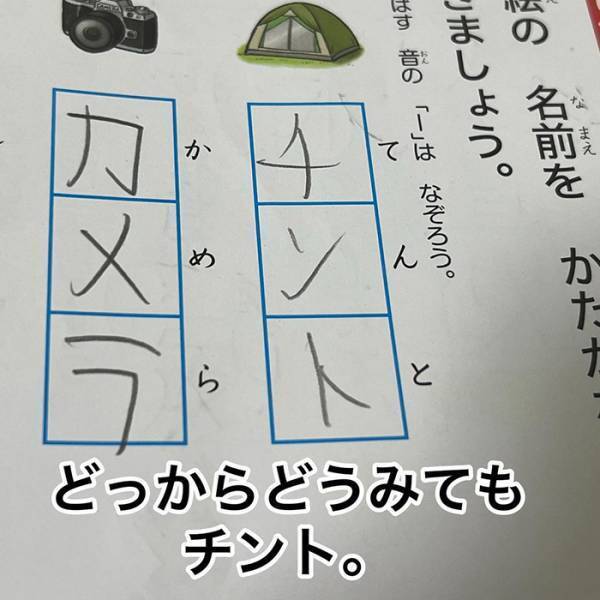 絵の 名前を かたか
きましょう。
ばす 音の 「ー」は なぞろう。
てんと
チント
かめら
カメラ
どっからどうみても
チント。